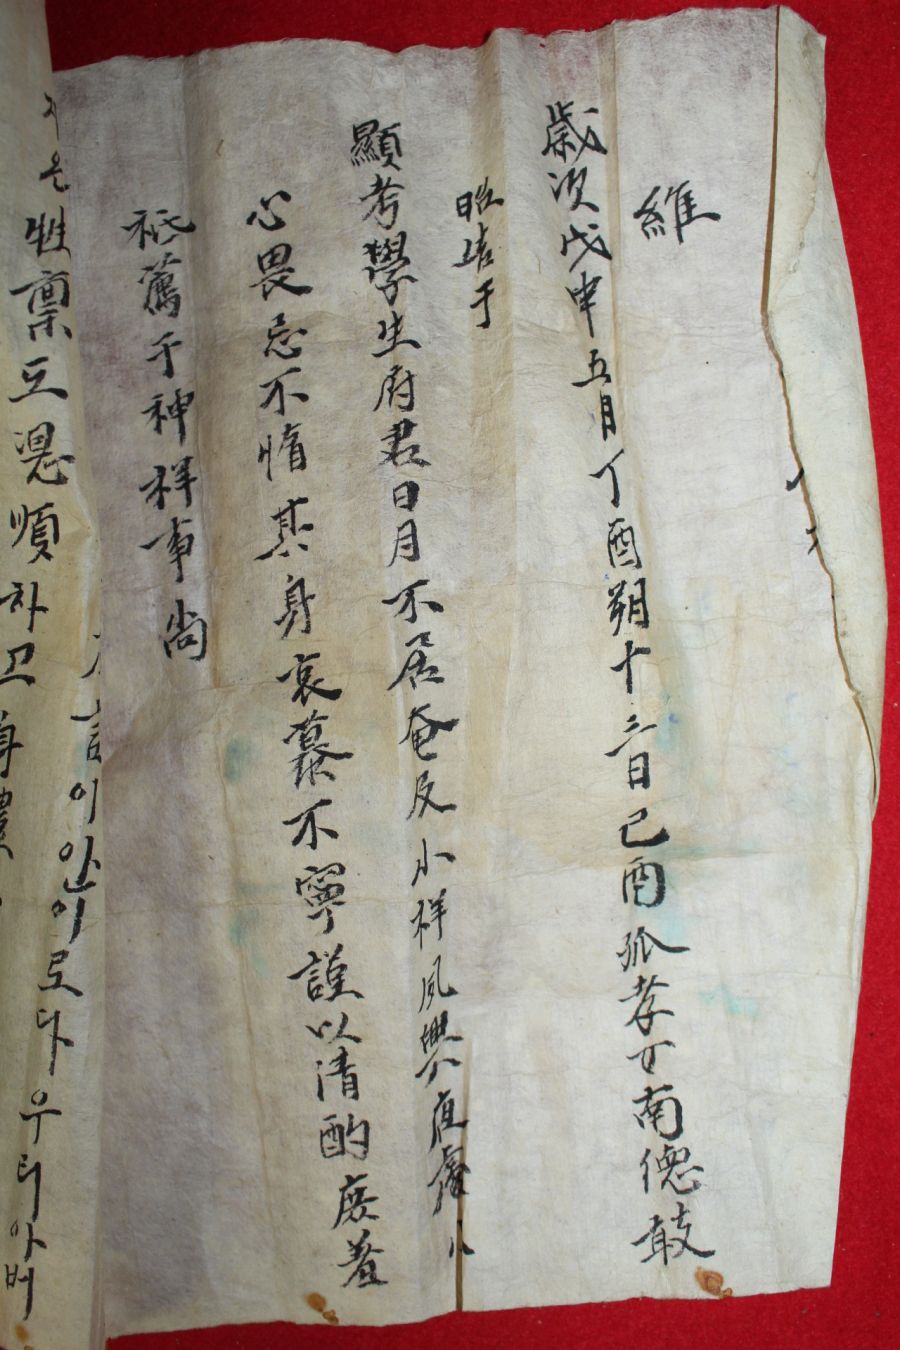 維
歲次戊申五月丁酉朔十三日己酉孤孝子南德敢
昭告于
顯考學生府君日月不居奄及小祥夙興夜處小
心畏忌不惰其身哀慕不寧謹以清酌庶羞
祗薦于神祥事尙
言이안이로다우리아버
順하고尊禮